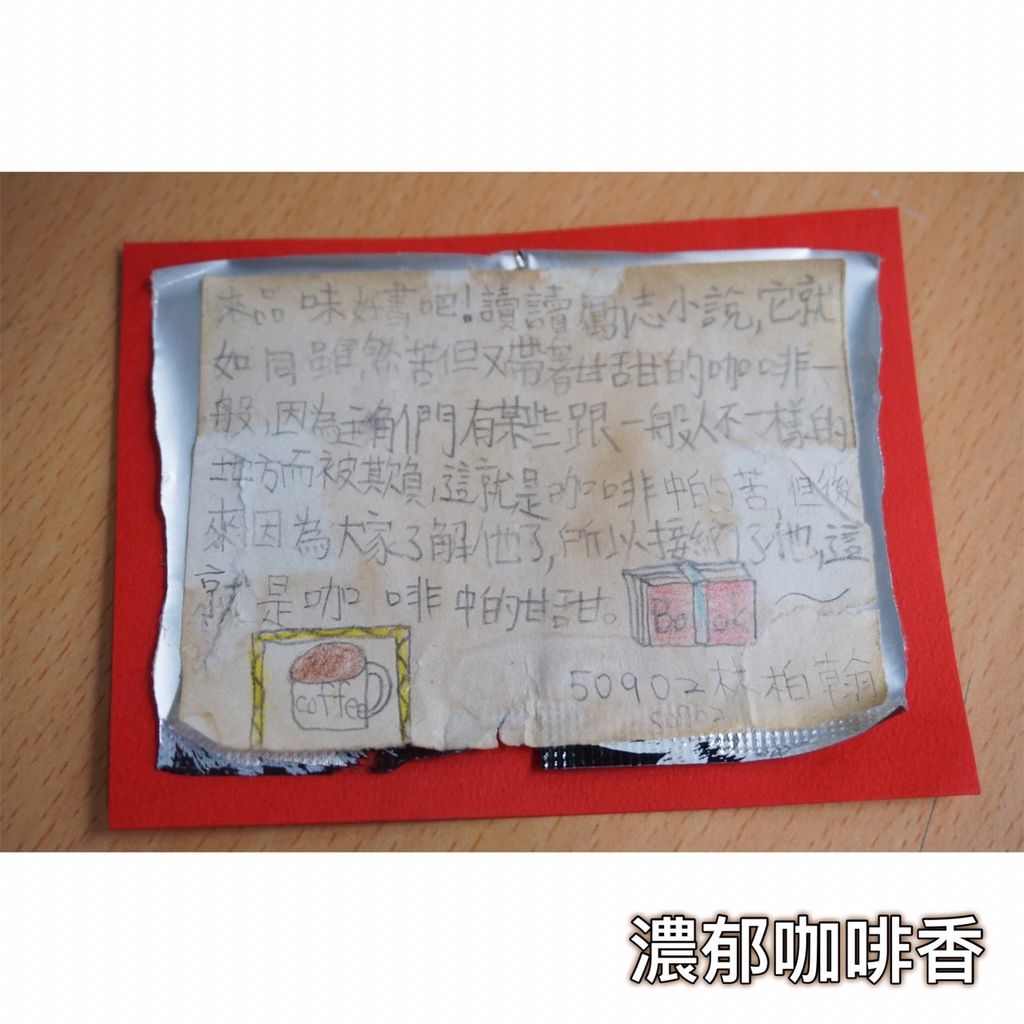 來品味好書吧!讀讀勵志小說,它就
如同雖然苦但又帶著甘甜的咖啡一
般,因為主角們有某些跟一般人不一樣的
地方而被欺負,這就是咖啡中的苦,但後
來因為大家了解他了,所以接納了他,這
就是咖啡中的甘甜。
Book
coffee
50902林柏翰
50902
濃郁咖啡香